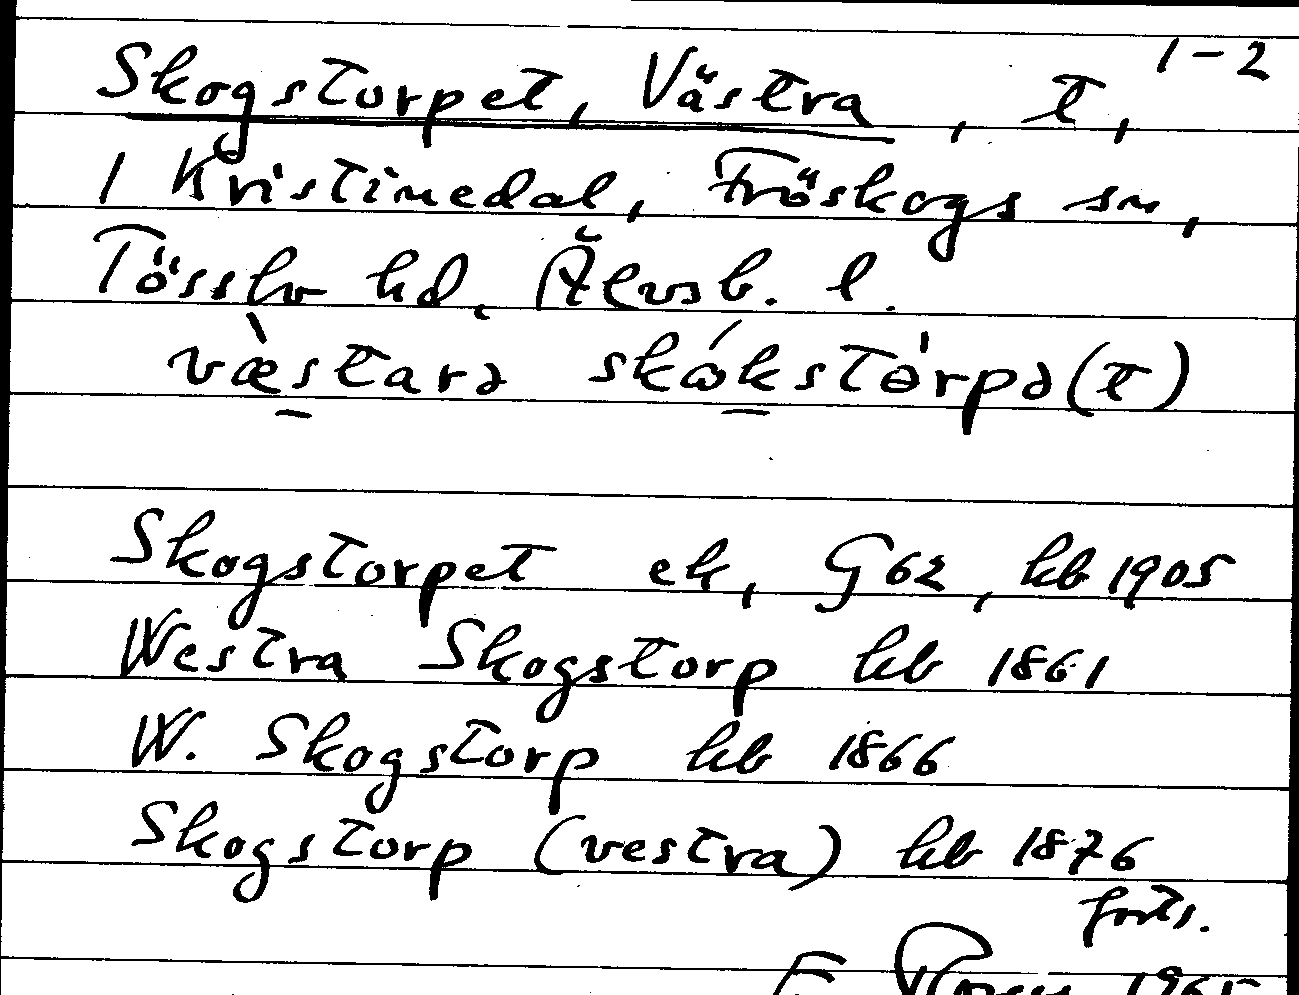 1-2
Skogstorpet, Västra, t,
i Kristinedal, Fröskogs sn,
Tössbo hd. Älvsb. l.
væ̀starə skɷ́kstɵ̀rpə(t)
Skogstorpet ek, G62, kb 1905
Westra Skogstorp kb 1861
W. Skogstorp kb 1866
Skogstorp (vestra) kb 1876
forts.
1965